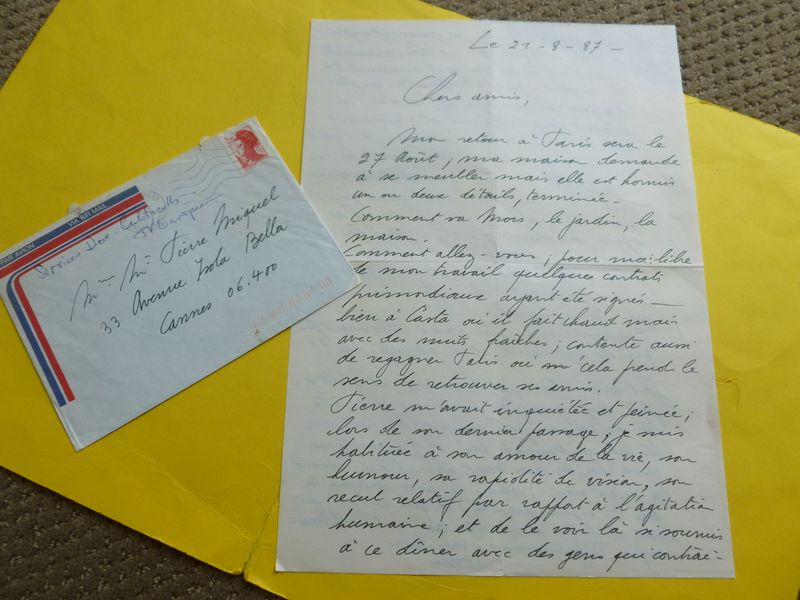 PAR AVION
VIA AIR MAIL
Services Doc. Culturelle
TV Europe
Mme Mr Pierre Miquel
33 Avenue Isola Bella
Cannes 06.400
Le 21-8-87-
Chers amis,
Mon retour à Paris sera le
27 Août; ma maison demande
à se meubler mais elle est hormis
un ou deux détails, terminée.
Comment va Mors, le jardin, la
maison.
Comment allez-vous; pour moi: libre
de mon travail quelques contrats
primordiaux ayant été signés _
bien à Casta où il fait chaud mais
avec des nuits fraîches; contente aussi
de regagner Paris où cela prend le
sens de retrouver ses amis.
Pierre m'avait inquiétée et peinée;
lors de son dernier passage; je suis
habituée à son amour de la vie, son
humour, sa rapidité de vision, son
recul relatif par rapport à l'agitation
humaine; et de le voir là si soumis
à ce dîner avec des gens qui contrai-